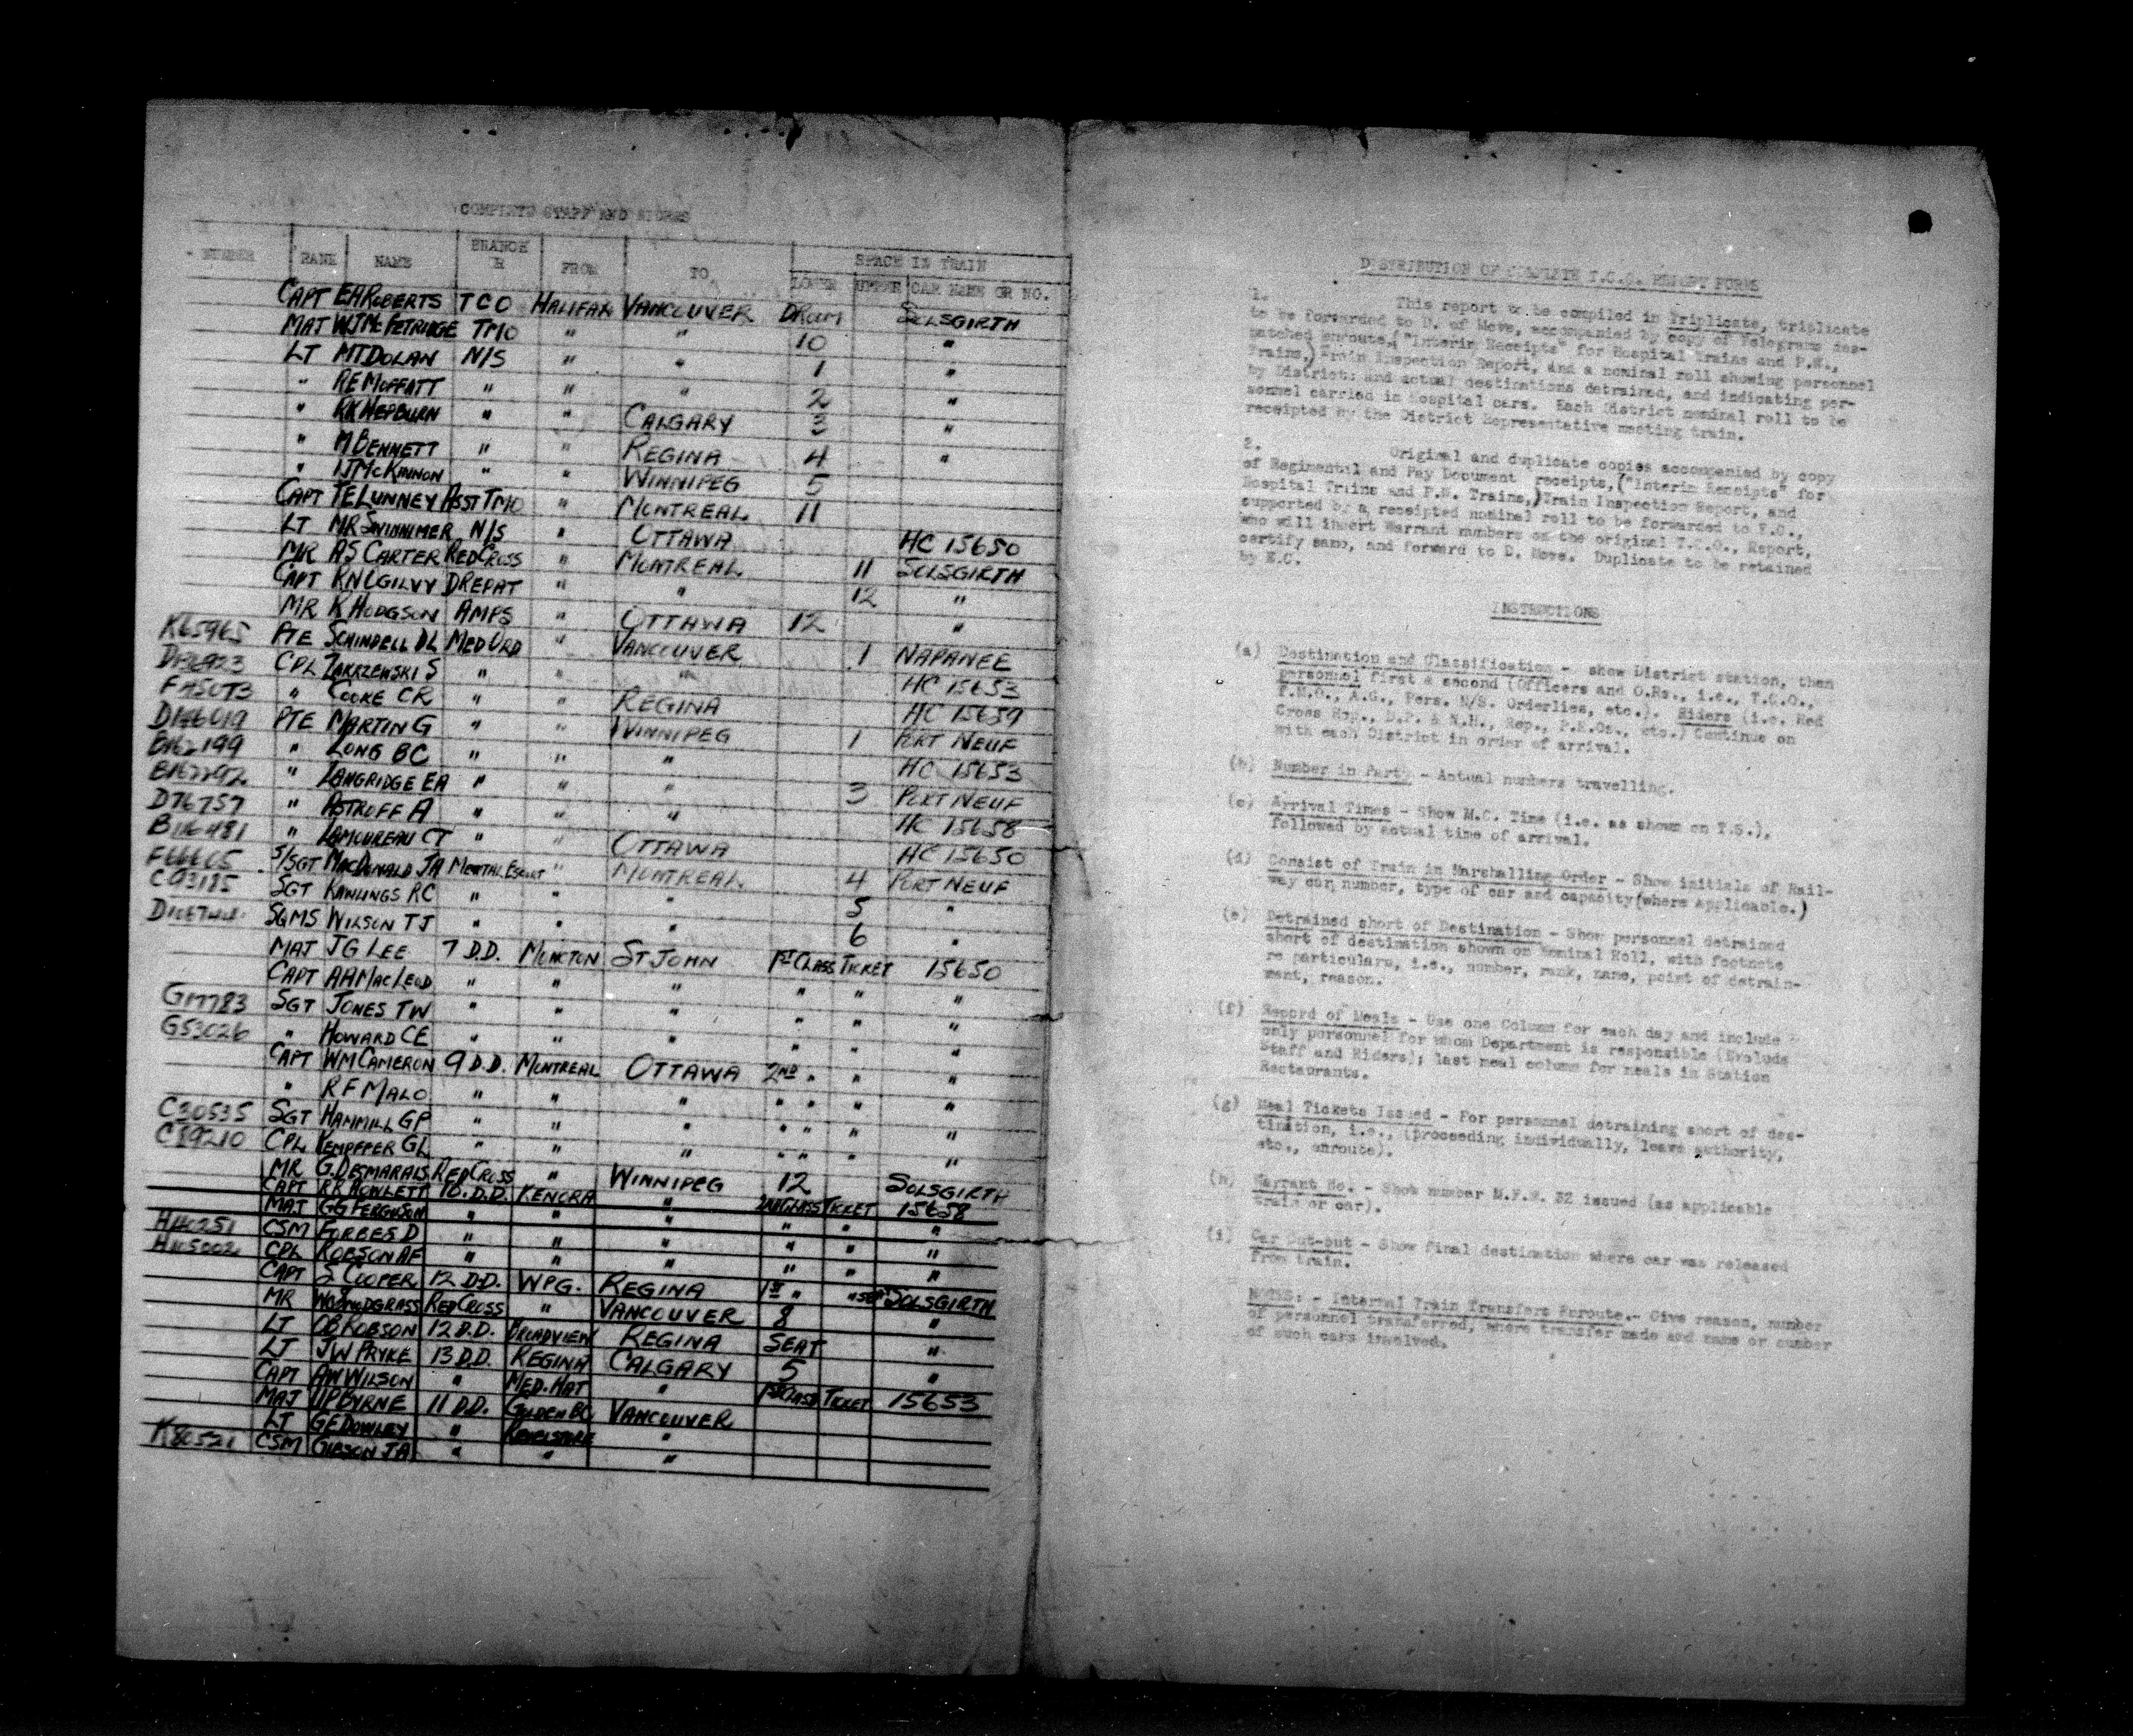 COMPLETE STAFF AND RIDERS
NUMBER RANK NAME BRANCH R FROM TO SPACE IN TRAIN
LOWER UPPER CAR NAME OR NO.
CAPT EA ROBERTS TCO HALIFAX VANCOUVER DRoom SOLSGIRTH
MAJ WJ McFETRIDGE TMO " " 10 "
LT MT DOLAN N/S " " 1 "
" RE MOFFATT " " " 2 "
" RK HEPBURN " " CALGARY 3 "
" M BENNETT " " REGINA 4 "
" IJ McKINNON " " WINNIPEG 5
CAPT TE LUNNEY ASST TMO " MONTREAL 11
LT MR SWINNIMER N/S " OTTAWA HC 15650
MR AS CARTER RED CROSS " MONTREAL 11 SOLSGIRTH
CAPT KN OGILVY DREPAT " " 12 "
MR K HODGSON AMPS " OTTAWA 12 "
K65965 PTE SCHINDELL DL MED ORD " VANCOUVER 1 NAPANEE
CPL ZAKRZEWSKI S " " " HC 15653
" COOKE CR " " REGINA HC 15659
PTE MARTIN G " " WINNIPEG 1 PORT NEUF
" LONG BC " " " HC 15653
" LANGRIDGE EA " " " 3 PORT NEUF
D76757 " ASTROFF A " " " HC 15658
B116481 " LAMOUREAU CT " " OTTAWA HC 15650
S/SGT MACDONALD JA MENTAL ESCORT " MONTREAL 4 PORT NEUF
C93185 SGT RAWLINGS RC " " " 5 "
SQMS WILSON TJ " " " 6 "
MAJ JG LEE 7 D.D. MONCTON ST JOHN 1ST CLASS TICKET 15650
CAPT AA MACLEOD " " " " " "
SGT JONES TW " " " " " "
G53026 " HOWARD CE " " " " " "
CAPT WM CAMERON 9 D.D. MONTREAL OTTAWA 2ND " " "
" RF MALO " " " " " " "
C30535 SGT HAMMILL GP " " " " " " "
C89210 CPL KEMPFFER GL " " " " " " "
MR G. DESMARAIS RED CROSS " WINNIPEG 12 SOLSGIRTH
CAPT RR ROWLETT 10. D.D. KENORA " 2ND CLASS TICKET 15658
MAJ GG FERGUSON " " " " " "
CSM FORBES D " " " " " "
CPL ROBSON AF " " " " " "
CAPT S COOPER 12 D.D. WPG. REGINA 1ST " SOLSGIRTH
MR SNODGRASS RED CROSS " VANCOUVER 8 "
LT OB ROBSON 12 D.D. BROADVIEW REGINA SEAT "
LT JW PRYKE 13 D.D. REGINA CALGARY 5 "
CAPT AW WILSON " MED. HAT " 1ST CLASS TICKET 15653
MAJ BYRNE 11 D.D. GOLDEN BC VANCOUVER
LT GE DOWLEY " REVELSTOKE "
K80521 CSM GIBSON JA " " "
DISTRIBUTION OF COMPLETE T.C.O. REPORT FORMS
1. This report to be compiled in Triplicate, triplicate
to be forwarded to D. of Move, accompanied by copy of Telegrams des-
patched enroute, ("Interim Receipts" for Hospital Trains and P.W.,
Trains,) Train Inspection Report, and a nominal roll showing personnel
by Districts and actual destinations detrained, and indicating per-
sonnel carried in Hospital cars. Each District nominal roll to be
receipted by the District Representative meeting train.
2. Original and duplicate copies accompanied by copy
of Regimental and Pay Document receipts, ("Interim Receipts" for
Hospital Trains and P.W. Trains,) Train Inspection Report, and
supported by a receipted nominal roll to be forwarded to E.C.,
who will insert Warrant numbers on the original T.C.O., Report,
certify same, and forward to D. Move. Duplicate to be retained
by E.C.
INSTRUCTIONS
(a) Destination and Classification - show District station, then
personnel first & second (Officers and O.Rs., i.e., T.C.O.,
T.M.O., A.G., Pers. N/S. Orderlies, etc.). Riders (i.e. Red
Cross Rep., D.P. & N.H., Rep., P.R.Os., etc.) Continue on
with each District in order of arrival.
(b) Number in Party - Actual numbers travelling.
(c) Arrival Times - Show M.C. Time (i.e. as shown on T.S.),
followed by actual time of arrival.
(d) Consist of Train in Marshalling Order - Show initials of Rail-
way car number, type of car and capacity (where applicable.)
(e) Detrained short of Destination - Show personnel detrained
short of destination shown on Nominal Roll, with footnote
re particulars, i.e., number, rank, name, point of detrain-
ment, reason.
(f) Record of Meals - Use one Column for each day and include
only personnel for whom Department is responsible (Exclude
Staff and Riders); last meal column for meals in Station
Restaurants.
(g) Meal Tickets Issued - For personnel detraining short of des-
tination, i.e., (proceeding individually, leave authority,
etc., enroute).
(h) Warrant No. - Show number M.F.W. 32 issued (as applicable
train or car).
(i) Car Cut-out - Show final destination where car was released
from train.
NOTES: - Internal Train Transfers Enroute.- Give reason, number
of personnel transferred, where transfer made and name or number
of such cars involved.